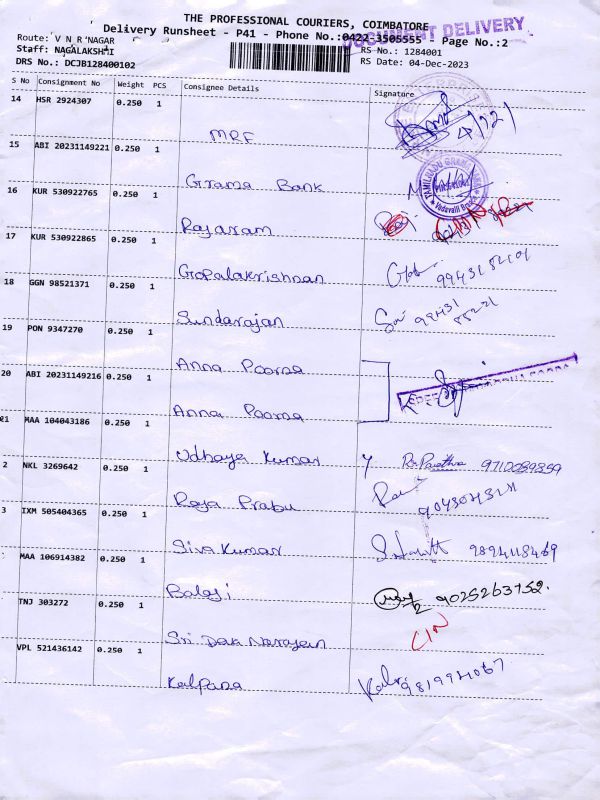 THE PROFESSIONAL COURIERS, COIMBATORE
Delivery Runsheet - P41 - Phone No.:0422-3505555 - Page No.:2
DOCUMENT DELIVERY
Route: V N R NAGAR
Staff: NAGALAKSHMI
RS No.: 1284001
DRS No.: DCJB128400102
RS Date: 04-Dec-2023
S No Consignment No Weight PCS Consignee Details Signature
14 HSR 2924307 0.250 1
MRF 4/12/21
15 ABI 20231149221 0.250 1
Grama Bank
TAMILNADU GRAMA BANK
Vadavalli Branch
16 KUR 530922765 0.250 1
Rajaram
17 KUR 530922865 0.250 1
Gopalakrishnan
18 GGN 98521371 0.250 1
Sundarajan 99431 88221
19 PON 9347270 0.250 1
Anna Poorna
20 ABI 20231149216 0.250 1
Anna Poorna
21 MAA 104043186 0.250 1
Udhaya Kumar
2 NKL 3269642 0.250 1
Raja Prabu
3 IXM 505404365 0.250 1
Siva Kumar 9894118469
MAA 106914382 0.250 1
Balaji 9025263752.
TNJ 303272 0.250 1
Sri Dak Narayan CIN
VPL 521436142 0.250 1
Kalpana 9819921067